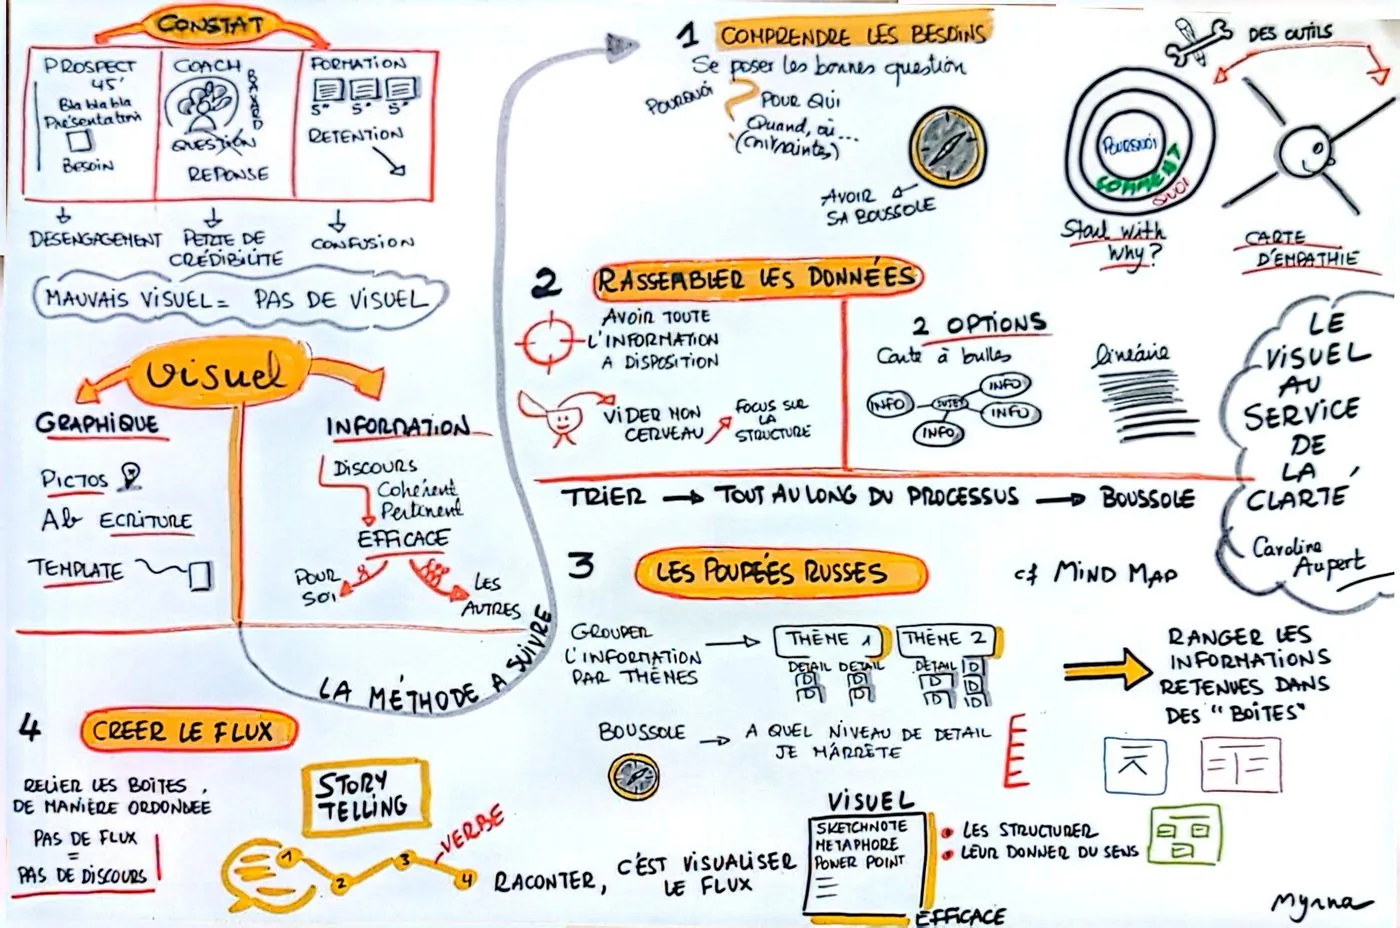 CONSTAT
PROSPECT
45'
Bla bla bla
Présentation
BESOIN
COACH
BAVARD
QUESTION
REPONSE
FORMATION
5" 5" 5"
RETENTION
DESENGAGEMENT
PERTE DE
CRÉDIBILITÉ
CONFUSION
MAUVAIS VISUEL = PAS DE VISUEL
VISUEL
GRAPHIQUE
PICTOS
Ab ECRITURE
TEMPLATE
INFORMATION
DISCOURS
Cohérent
Pertinent
EFFICACE
POUR
SOI
LES
AUTRES
LA MÉTHODE A SUIVRE
1 COMPRENDRE LES BESOINS
Se poser les bonnes question
POURQUOI
POUR QUI
Quand, où...
(contraintes)
AVOIR
SA BOUSSOLE
DES OUTILS
POURQUOI
COMMENT
QUOI
Start with
Why?
CARTE
D'EMPATHIE
2 RASSEMBLER LES DONNÉES
AVOIR TOUTE
L'INFORMATION
A DISPOSITION
VIDER MON
CERVEAU
FOCUS SUR
LA
STRUCTURE
2 OPTIONS
Carte à bulles
INFO
INFO
SUJET
INFO
INFO
linéaire
TRIER → TOUT AU LONG DU PROCESSUS → BOUSSOLE
LE
VISUEL
AU
SERVICE
DE
LA
CLARTÉ
Caroline
Aupert
3 LES POUPÉES RUSSES
cf MIND MAP
GROUPER
L'INFORMATION
PAR THÈMES
THÈME 1
THÈME 2
DETAIL DETAIL
D D
D D
DETAIL D
D D
D D
RANGER LES
INFORMATIONS
RETENUES DANS
DES "BOITES"
BOUSSOLE
A QUEL NIVEAU DE DETAIL
JE M'ARRÊTE
4 CREER LE FLUX
RELIER LES BOITES,
DE MANIÈRE ORDONNEE
PAS DE FLUX
=
PAS DE DISCOURS
STORY
TELLING
1
2
3
4
VERBE
RACONTER, C'EST VISUALISER
LE FLUX
VISUEL
SKETCHNOTE
METAPHORE
POWER POINT
EFFICACE
LES STRUCTURER
LEUR DONNER DU SENS
Mynna